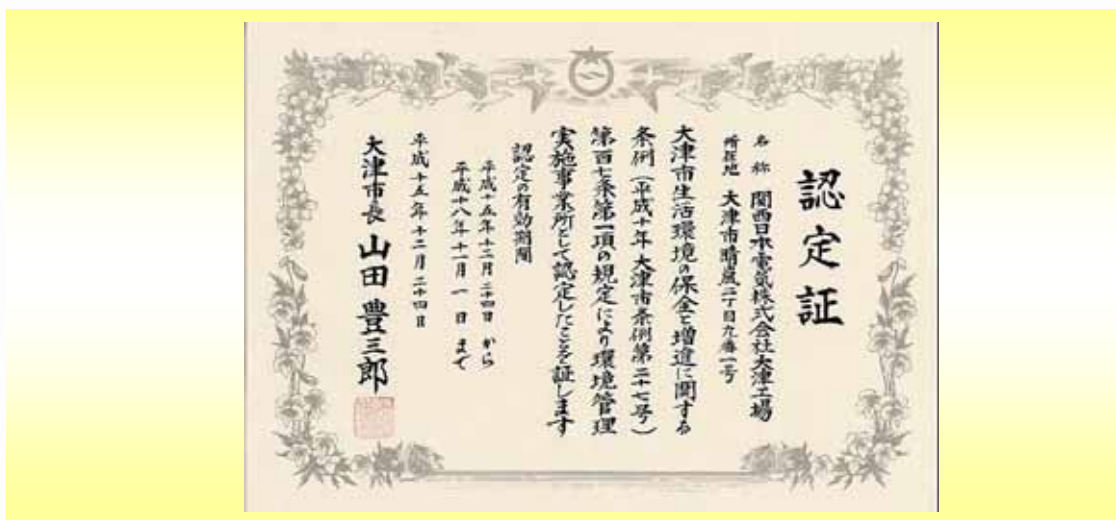 認定証
名称 関西日本電気株式会社大津工場
所在地 大津市晴嵐二丁目九番一号
大津市生活環境の保全と増進に関する
条例(平成十年大津市条例第二十七号)
第百七条第一項の規定により環境管理
実施事業所として認定したことを証します
認定の有効期間
平成十五年十二月二十四日から
平成十八年十一月一日まで
平成十五年十二月二十四日
大津市長 山田豊三郎